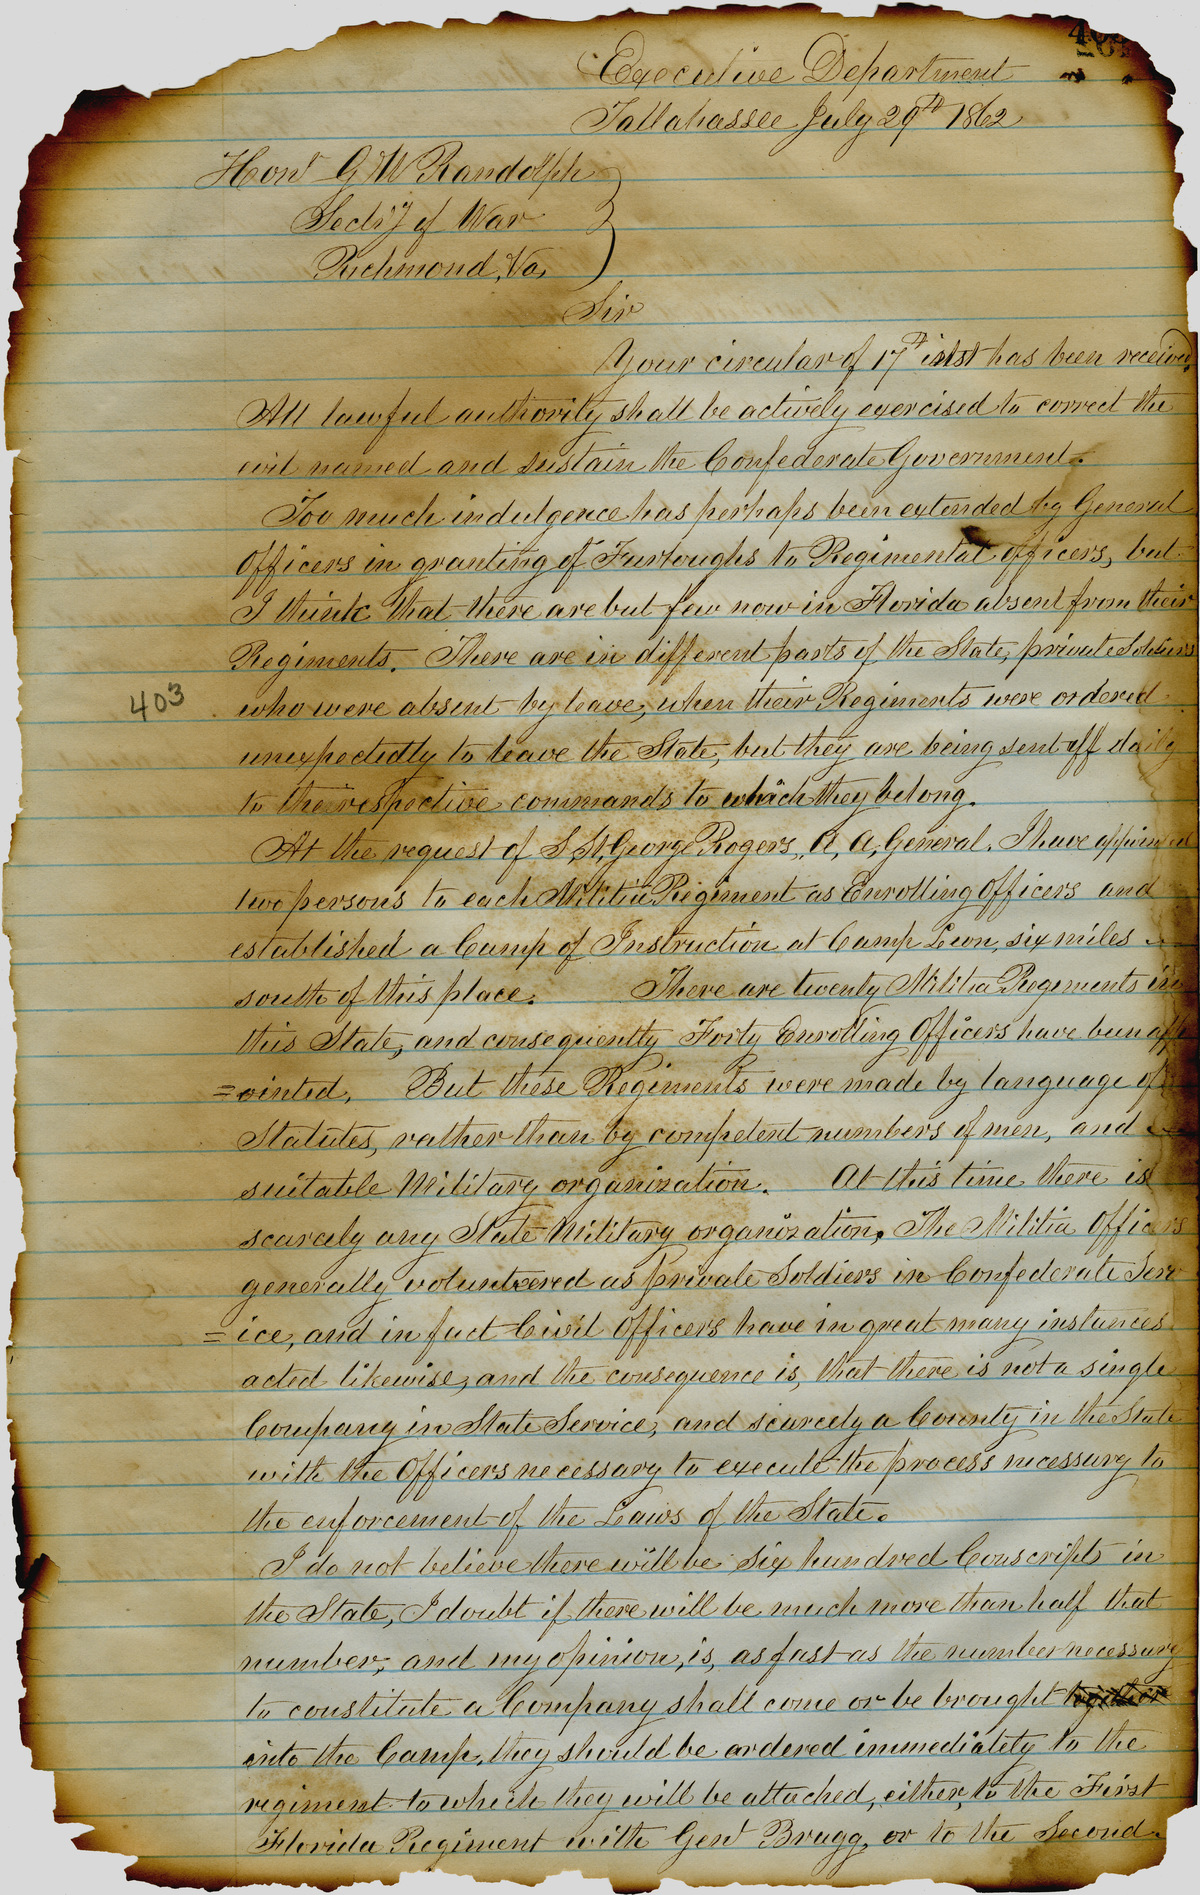 Executive Department
Tallahassee July 29th 1862
Honl G W Randolph
Sect'y of War
Richmond, Va,
Sir
Your circular of 17th inst has been received.
All lawful authority shall be actively exercised to correct the
evil named and sustain the Confederate Government.
Too much indulgence has perhaps been extended by General
Officers in granting of Furloughs to Regimental officers, but
I think that there are but few now in Florida absent from their
Regiments. There are in different parts of the State, private Soldiers
403
who were absent by leave, when their Regiments were ordered
unexpectedly to leave the State, but they are being sent off daily
to their respective commands to which they belong.
At the request of S, St, George Rogers, A, A, General, I have appointed
two persons to each Militia Regiment as Enrolling Officers and
established a Camp of Instruction at Camp Leon, six miles
south of this place. There are twenty Militia Regiments in
this State, and consequently Forty Enrolling Officers have been app
=ointed, But these Regiments were made by language of
Statutes, rather than by competent numbers of men, and
suitable Military organization. At this time there is
scarcely any State Military organization, The Militia Officers
generally volunteered as private Soldiers in Confederate Serv
=ice, and in fact Civil Officers have in great many instances
acted likewise, and the consequence is, that there is not a single
Company in State Service, and scarcely a County in the State
with the Officers necessary to execute the process necessary to
the enforcement of the Laws of the State.
I do not believe there will be six hundred Conscripts in
the State, I doubt if there will be much more than half that
number, and my opinion, is, as fast as the number necessary
to constitute a Company shall come or be brought together
into the Camp, they should be ordered immediately to the
regiment to which they will be attached, either, to the First
Florida Regiment with Genl Bragg, or to the Second